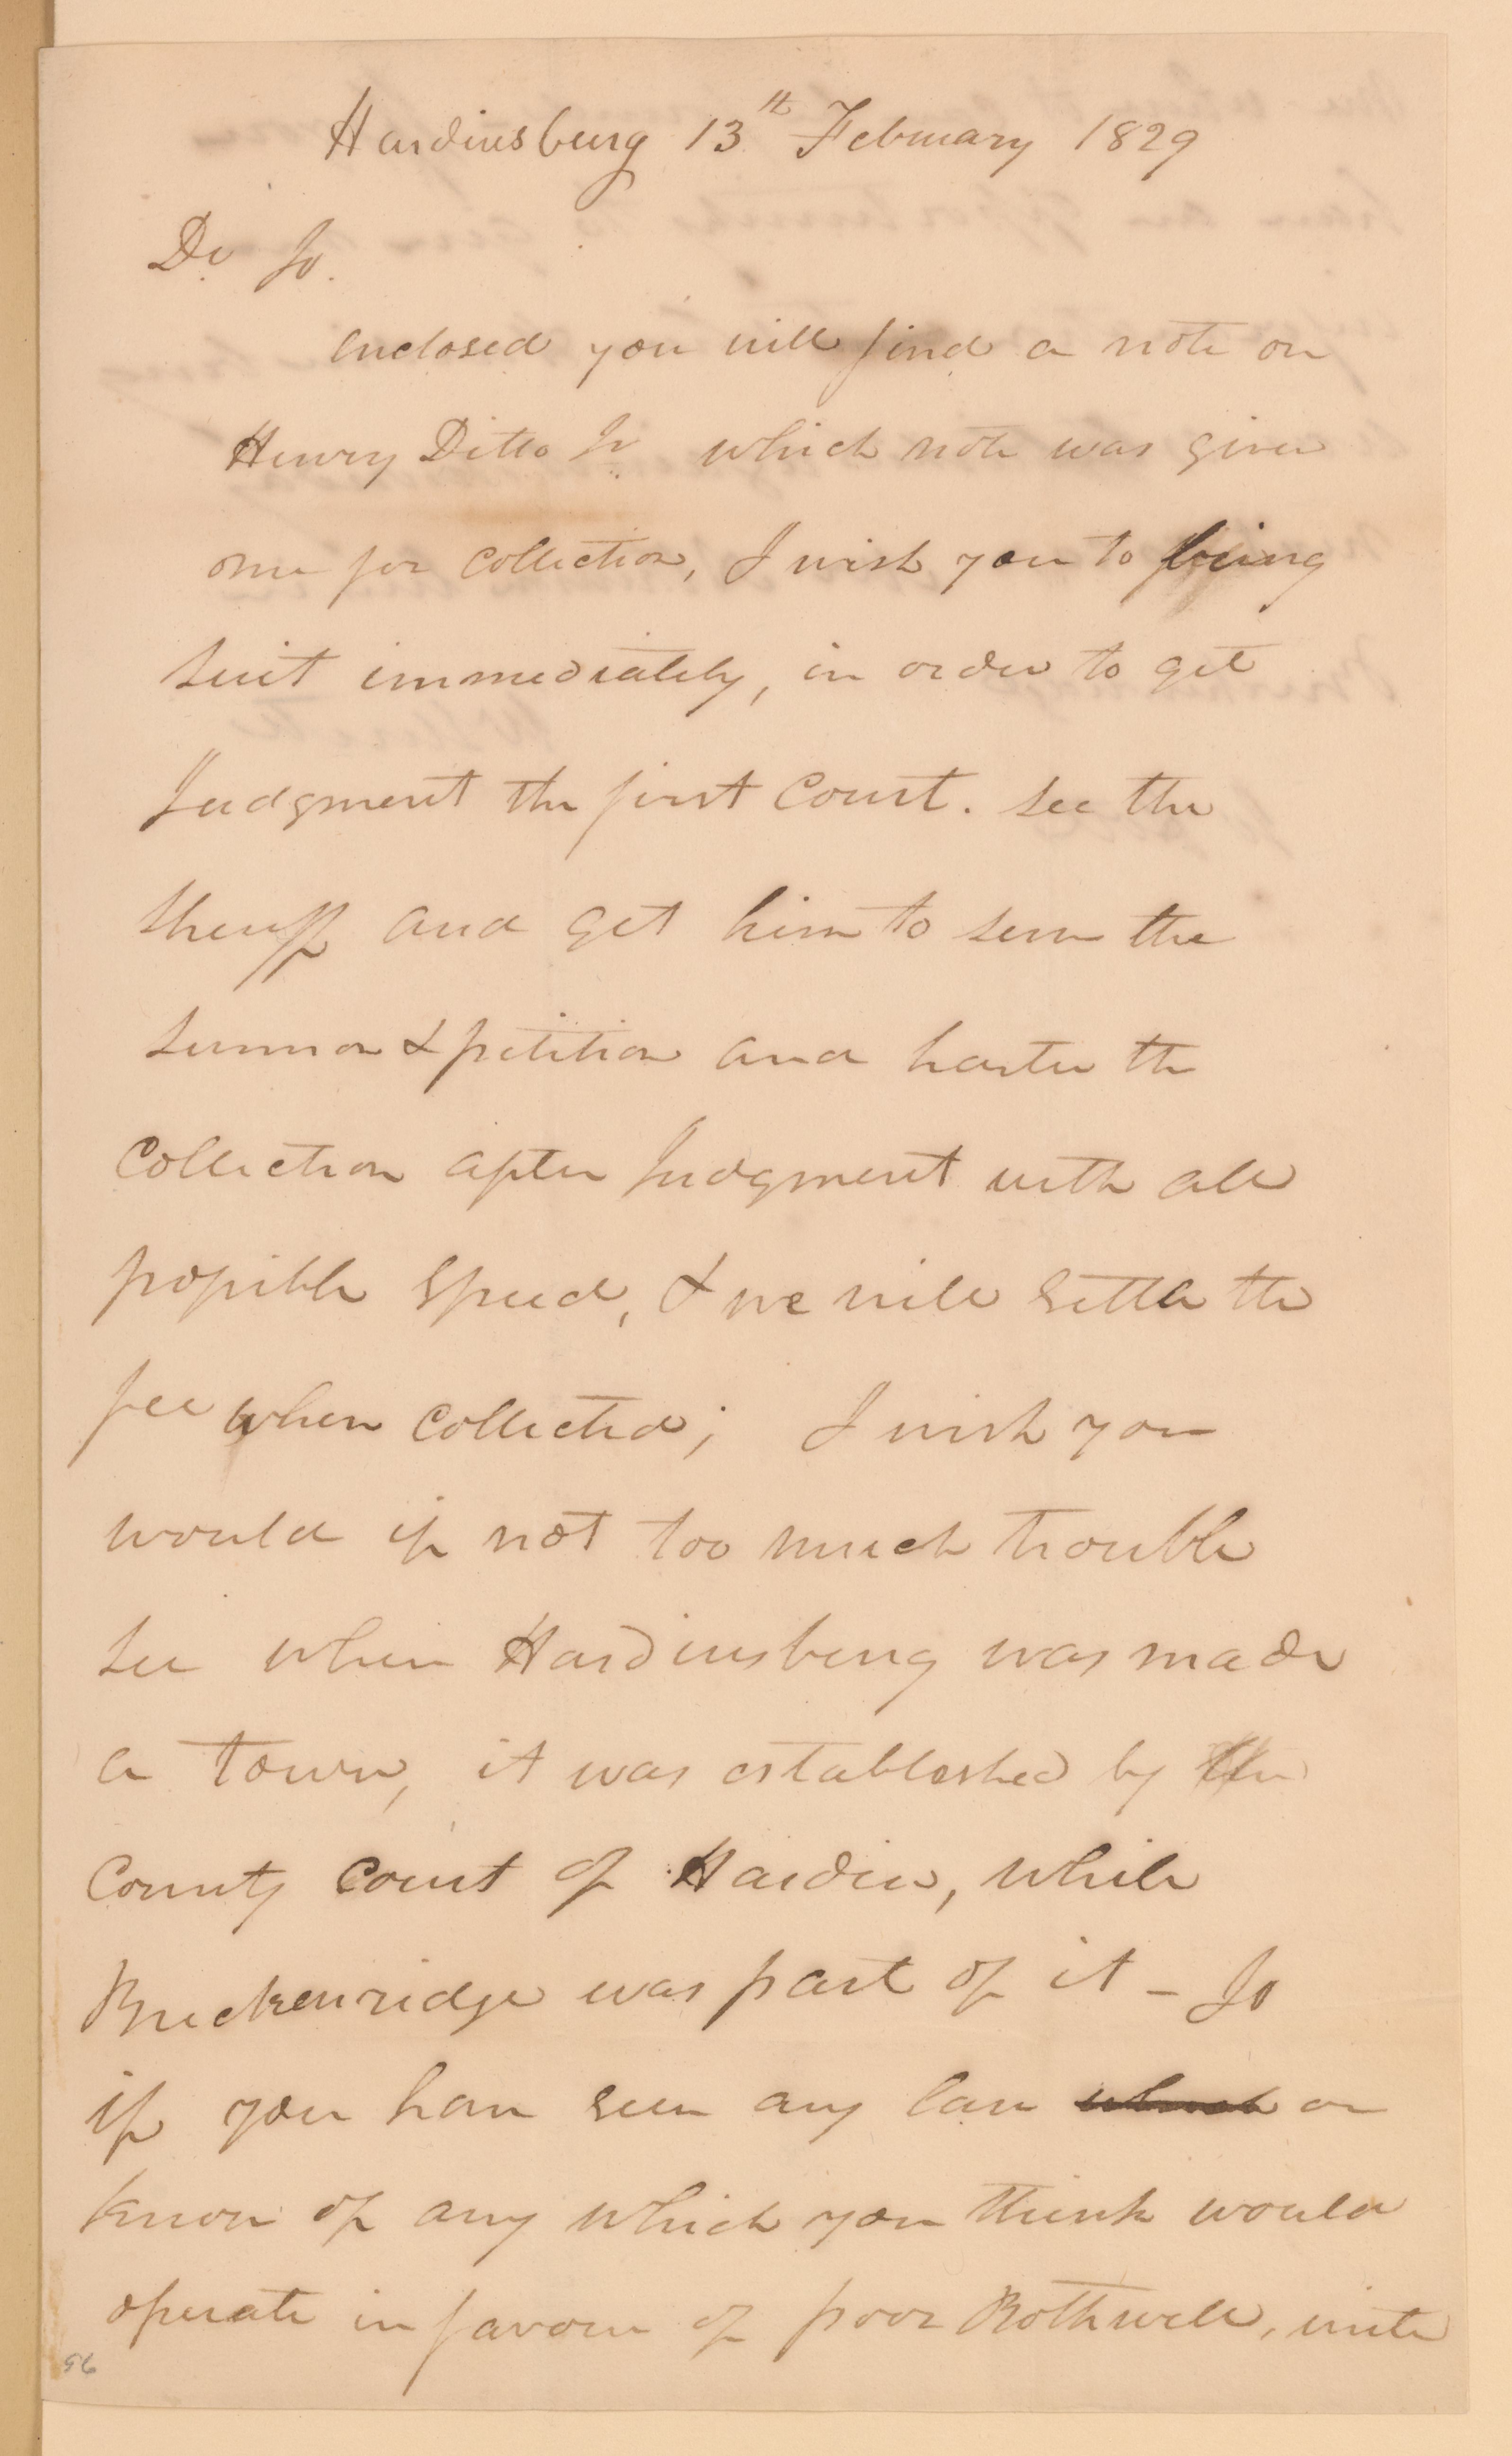 Hardinsburg 13th February 1829
Dr Jo.
enclosed you will find a note on
Henry Ditto Jr which note was given
me for collection, I wish you to bring
suit immediately, in order to get
Judgment the first Court. see the
sheriff and get him to serve the
summon & petition and hasten the
Collection after Judgment with all
possible speed, & we will settle the
fee when collected; I wish you
would if not too much trouble
see when Hardinsburg was made
a town, it was established by the
County Court of Hardin, while
Breckenridge was part of it – Jo
if you have seen any law which or
know of any which you think would
operate in favour of poor Rothwell, write
96